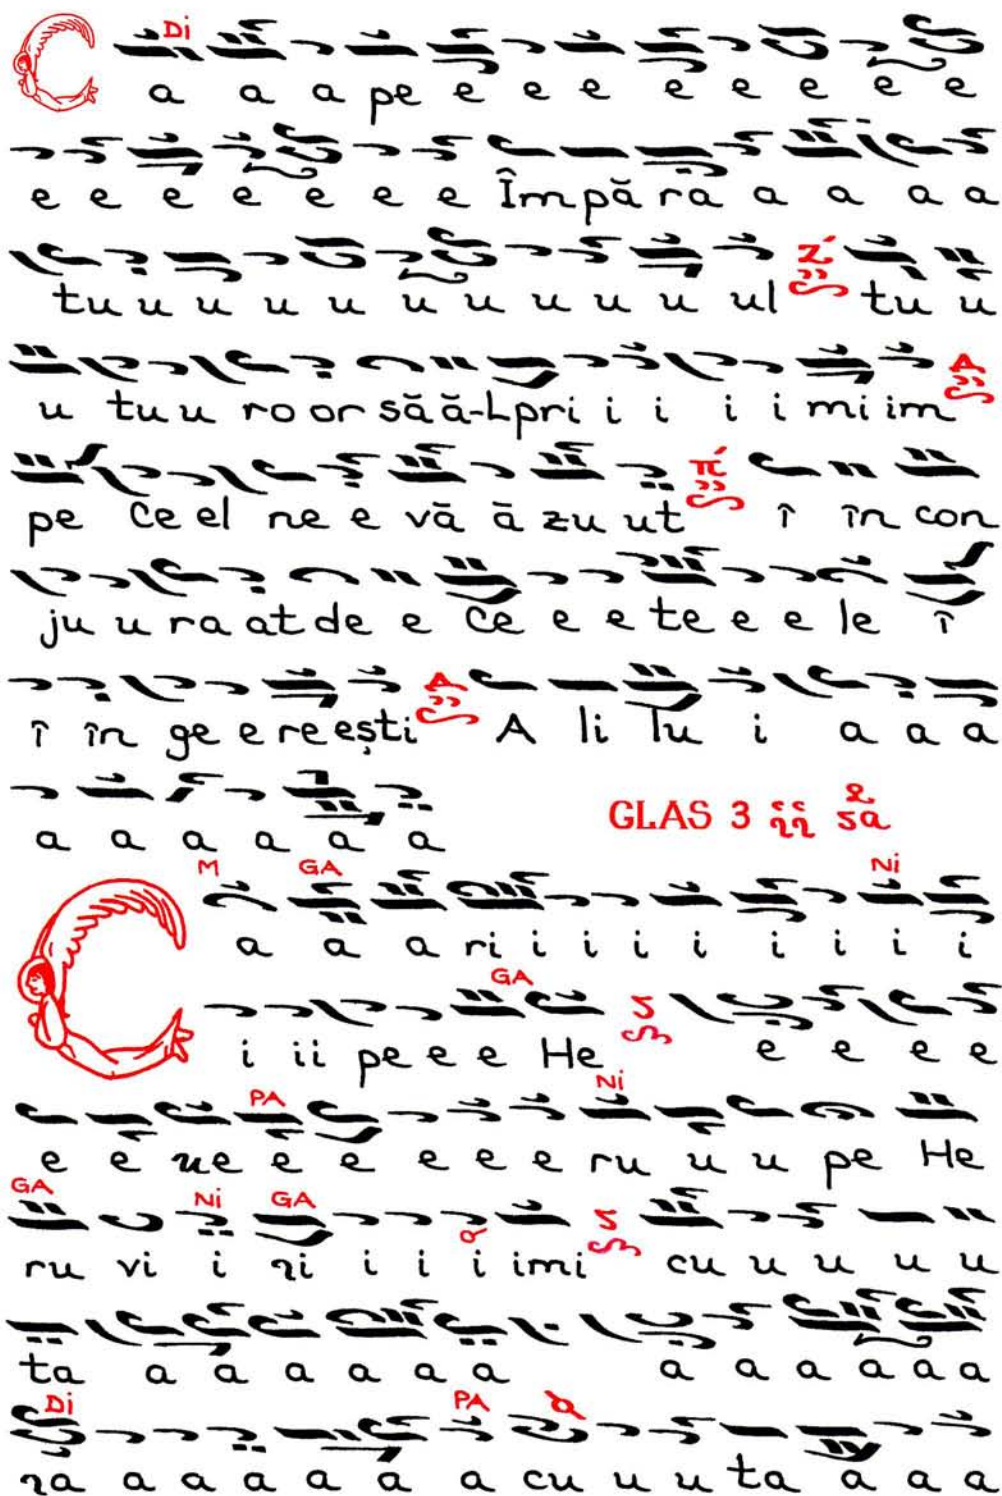 Di
C a a a pe e e e e e e e e
e e e e e e e Împără a a a a
tu u u u u u u u u u ul Z´ tu u
u tu u ro or să ă-L pri i i i i mi im A
pe Ce el ne e vă ă zu ut π´ î în con
ju u ra at de e Ce e e te e e le î
î în ge e re ești A A li lu i a a a
a a a a a a
GLAS 3 GA
M GA Ni
C a a a ri i i i i i i i i
GA
i i i pe e e He e e e e
PA Ni
e e ue e e e e e ru u u pe He
GA Ni GA
ru vi i ri i i i imi cu u u u u
ta a a a a a a a a a a a a
Di PA
ra a a a a a a cu u u ta a a a